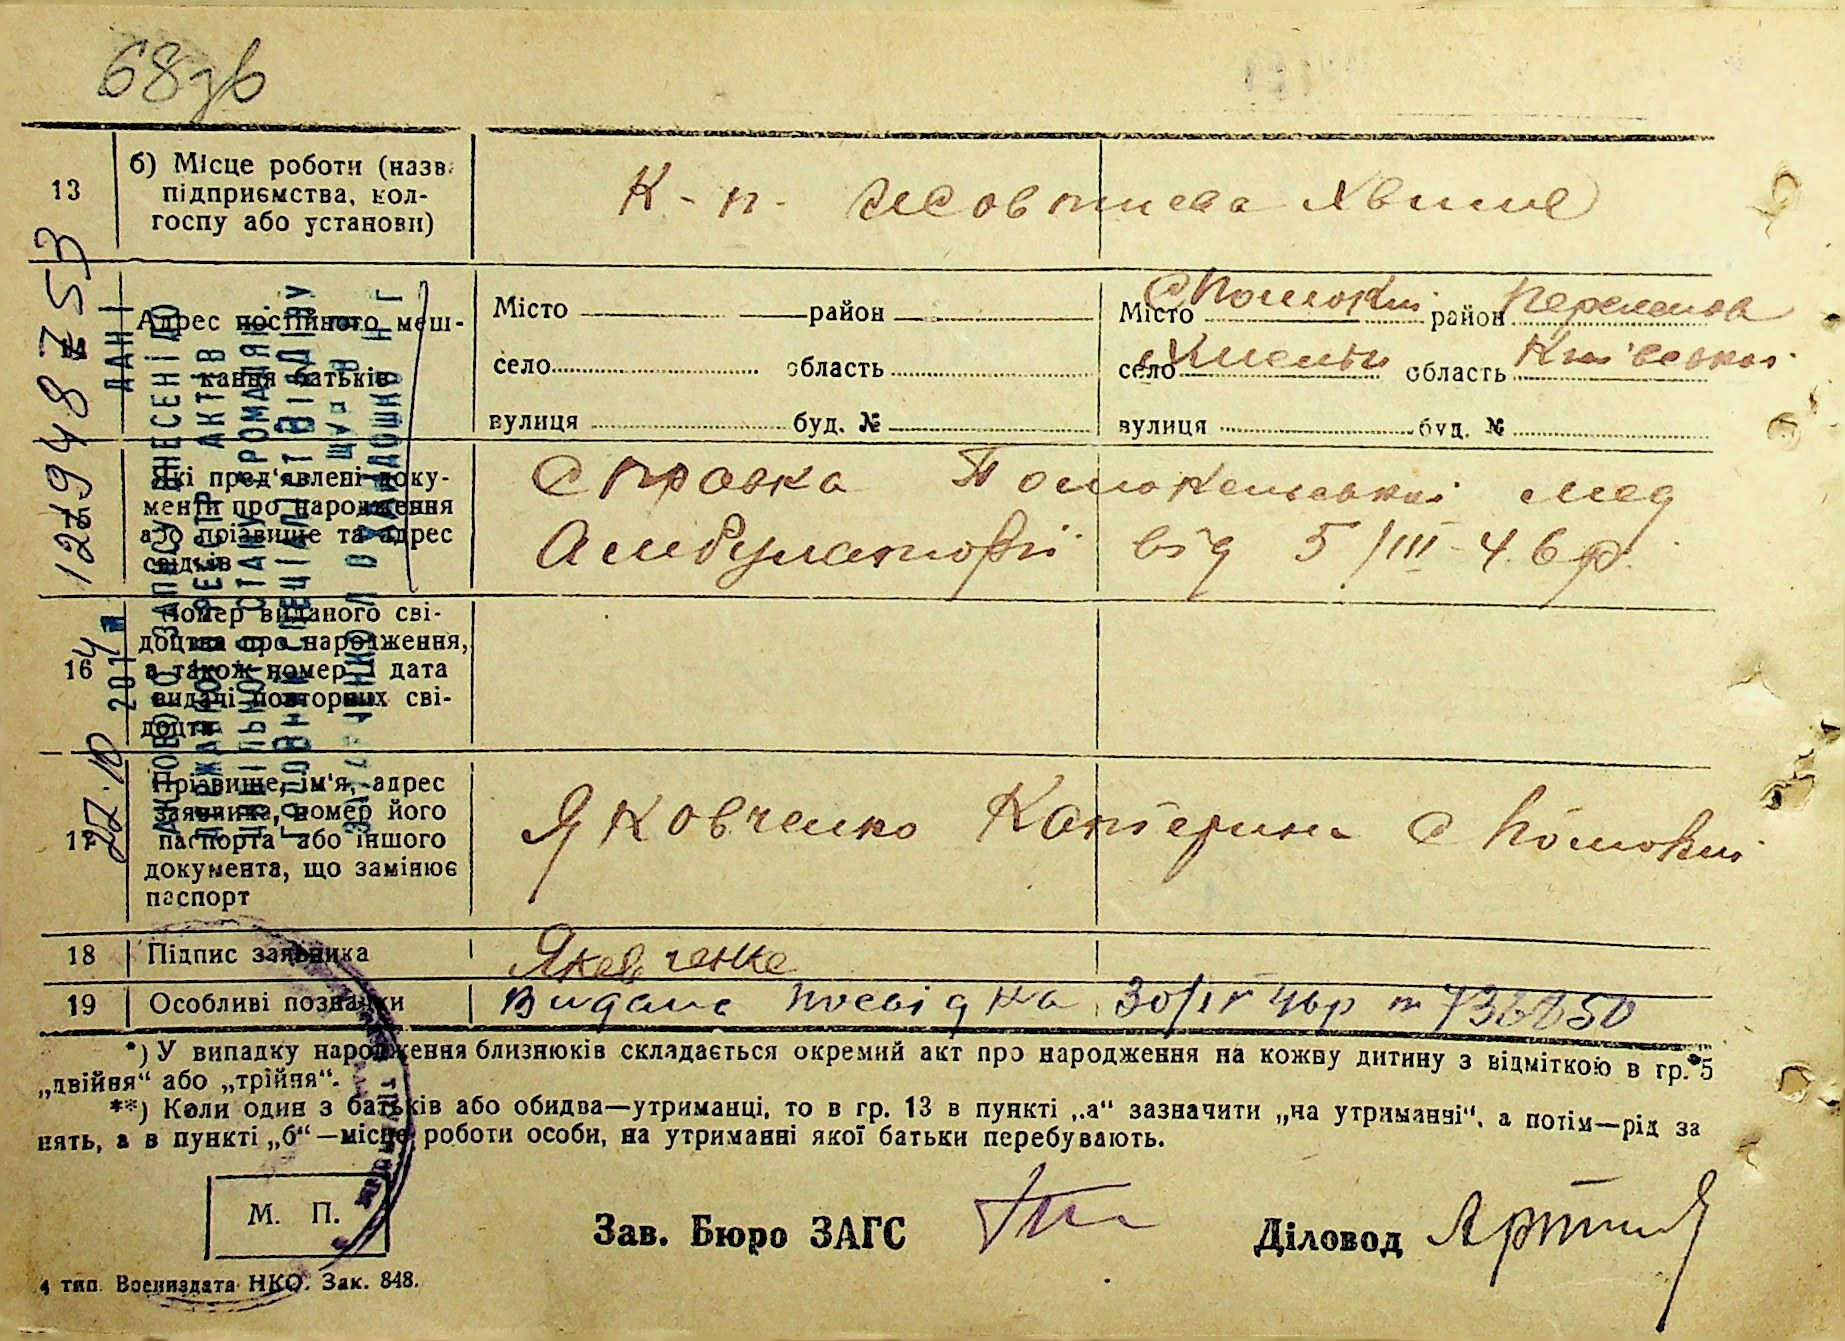 68зв
13
б) Місце роботи (назв.
підприємства, кол-
госпу або установи)
К-п. Жовтнева Хвиля
Адрес постійного меш-
кання батьків
Місто район
село область
вулиця буд. №
Місто с Помокли район Переяслов
село область Київської
вулиця буд. №
Які пред'явлені доку-
менти про народження
або прізвище та адрес
свідків
Справка Помокельської мед
Амбулаторії від 5/III-46р.
16
Номер виданого сві-
доцтва про народження,
а також номер і дата
видачі повторних сві-
доцтв
17
Прізвище, ім'я, адрес
заявника, номер його
паспорта або іншого
документа, що замінює
паспорт
Яковченко Катерина с Помокли
18
Підпис заявника
Яковченко
19
Особливі позначки
Видана посвідка 30/IV 46р №
ДАНІ
АКТОВОГО ЗАПИСУ ВНЕСЕНІ ДО
ДЕРЖАВНОГО РЕЄСТР АКТІВ
ЦИВІЛЬНОГО СТАНУ ГРОМАДЯН.
ГОЛОВН СПЕЦІАЛІСТ ВІДДІЛУ
22.10 2014
*) У випадку народження близнюків складається окремий акт про народження на кожну дитину з відміткою в гр. 5
„двійня“ або „трійня“.
**) Коли один з батьків або обидва—утриманці, то в гр. 13 в пункті „а“ зазначити „на утриманні“, а потім—рід за
нять, а в пункті „б“—місце роботи особи, на утриманні якої батьки перебувають.
М. П.
Зав. Бюро ЗАГС
Діловод
4 тип. Воениздата НКО. Зак. 848.